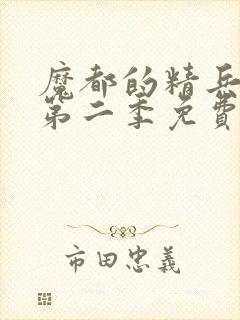 魔都的精兵
第二季免費
市田忠義